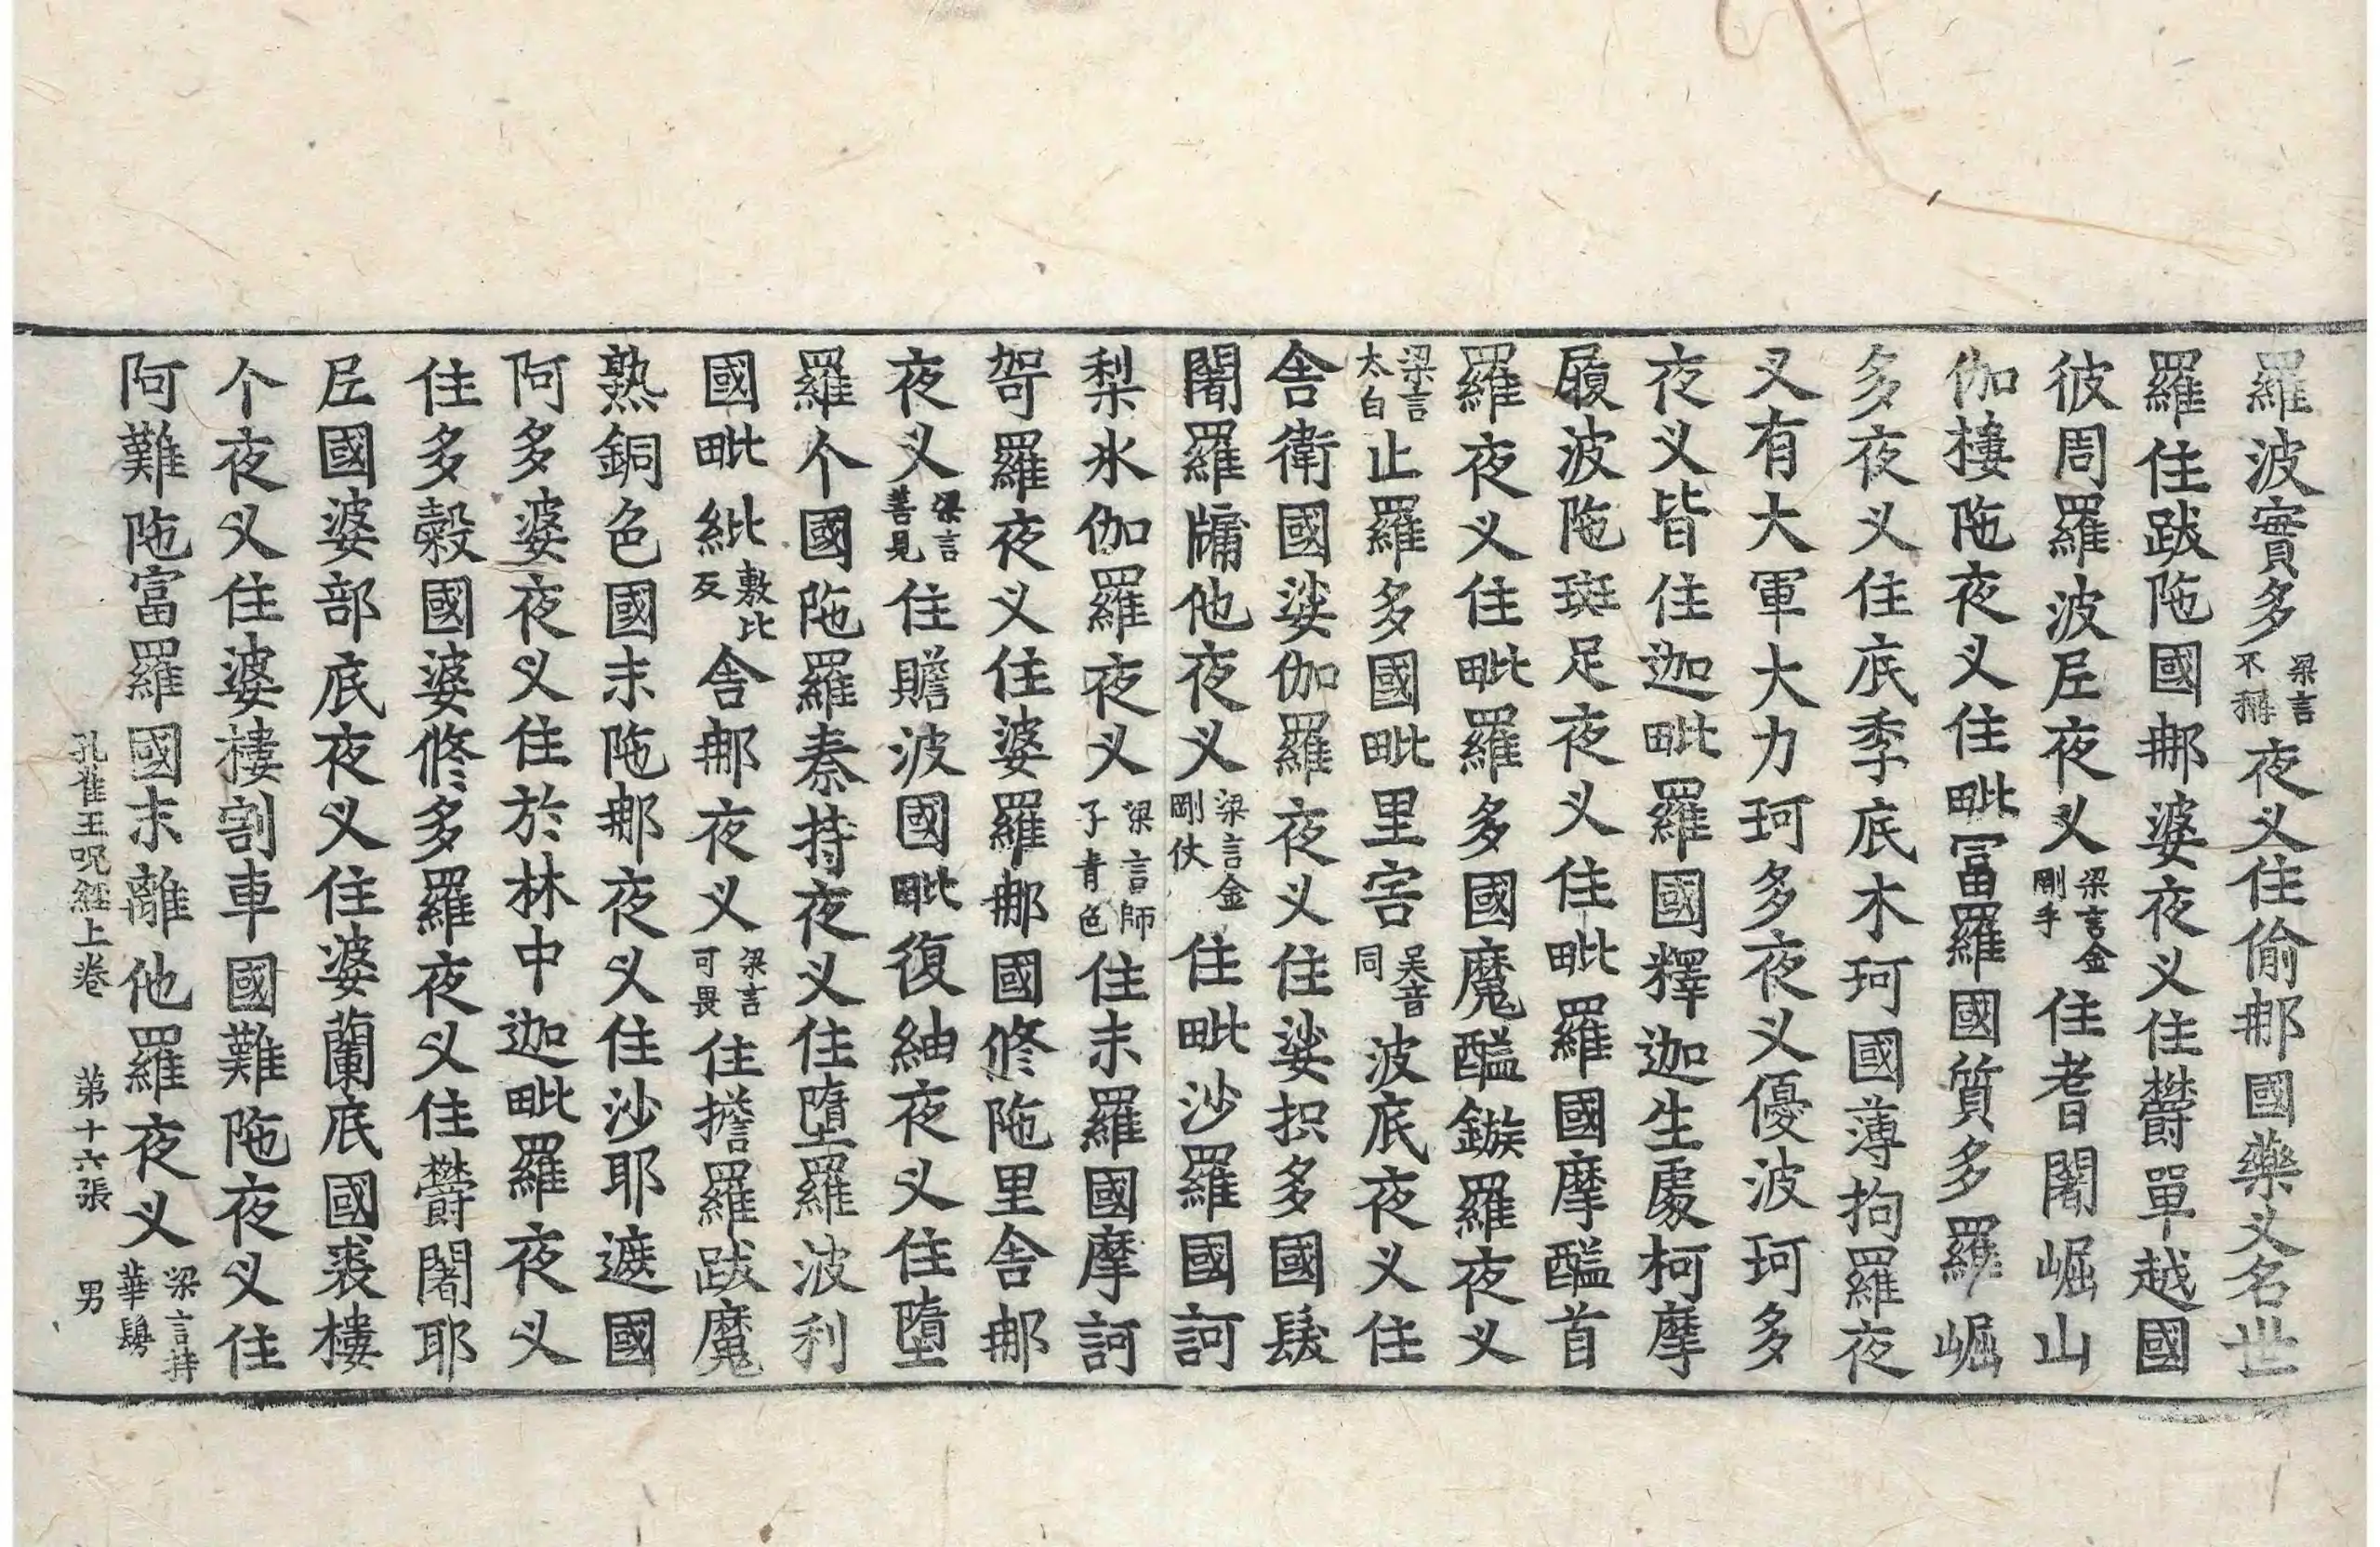 羅波實多梁言不稱夜义住偷那國藥义名世
羅住跋陁國那婆夜义住欝單越國
彼周羅波𡰱夜义梁言金剛手住耆闍崛山
伽摟陁夜义住毗冨羅國質多羅崛
多夜义住底季底木珂國薄拘羅夜
义有大軍大力珂多夜义優波珂多
夜义皆住迦毗羅國釋迦生處柯摩
履波陁斑足夜义住毗羅國摩醯首
羅夜义住毗羅多國魔醯鏃羅夜义
梁言太白止羅多國毗里害吴音同波底夜义住
舍衛國娑伽羅夜义住娑抧多國𩬊
闍羅牗他夜义梁言金剛仗住毗沙羅國訶
梨氷伽羅夜义梁言師子青色住末羅國摩訶
哿羅夜义住婆羅那國修陁里舍那
夜义梁言善見住贍波國毗復紬夜义住墮
羅个國陁羅奏持夜义住墮羅波利
國毗紕敷比反舍那夜义梁言可畏住擔羅跋魔
熟銅色國末陁那夜义住沙耶遮國
阿多婆夜义住於林中迦毗羅夜义
住多穀國婆修多羅夜义住欝闍耶
𡰱國婆部底夜义住婆蘭底國裘樓
个夜义住婆樓割車國難陁夜义住
阿難陁富羅國末離他羅夜义梁言持華鬘
孔雀王呪經上卷　第十六張　男